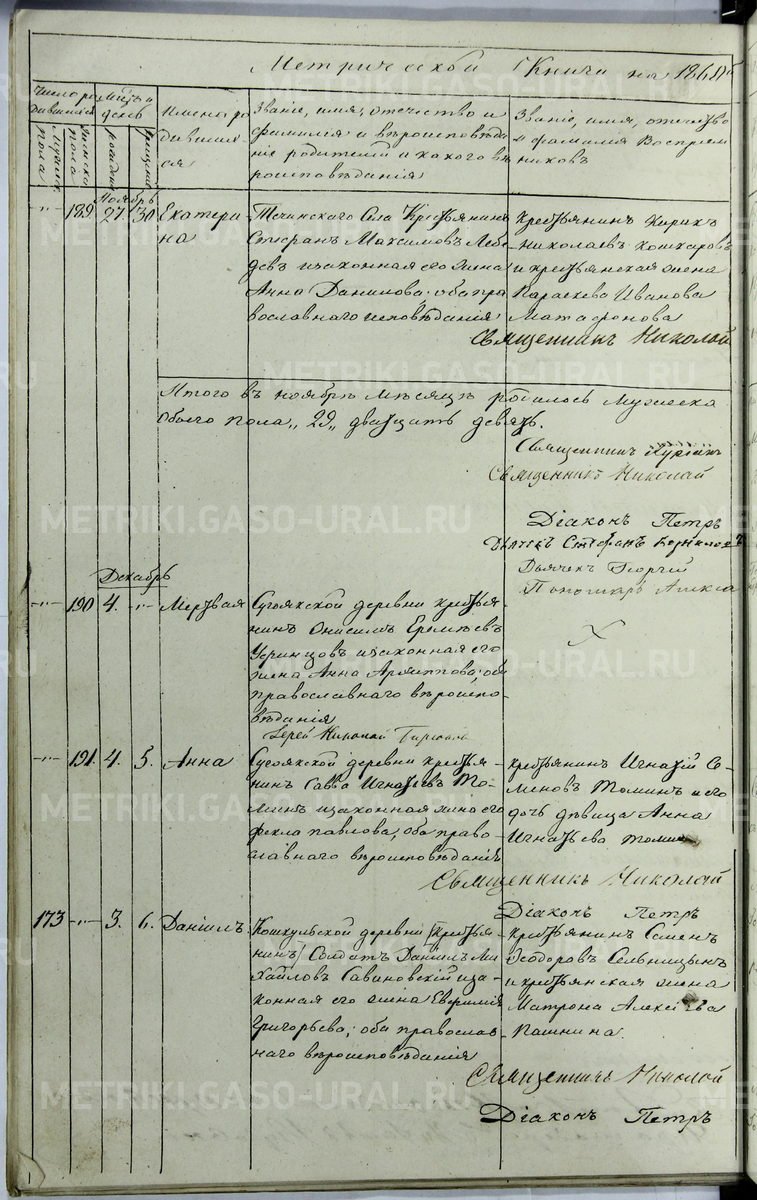 Метрической Книги на 186
Число родившихся
Мужеска пола
Женска пола
Мѣсяцъ и день
рожденiя
крещенiя
Имена родившихся
Званiе, имя, отечество и
фамилiя и вѣроисповѣда-
нiе родителей и какого вѣ-
роисповѣданiя
Званiе, имя, отечество
и фамилiя Воспрiем
никовъ
Ноябрь
-"- 189. 27. 30
Екатери
на
Течинскаго Села Крестьянинъ
Стефанъ Максимовъ Лебе
девъ и законная его жена
Анна Данилова оба пра
вославнаго исповѣданiя
крестьянинъ Кирикъ
Николаевъ Кошкаровъ
и крестьянская жена
Параскева Иванова
Матафонова
Священникъ Николай
METRIKI.GASO-URAL.RU
Итого въ ноябрѣ мѣсяцѣ родилось Мужеска
обоего пола „29„ двадцать девять.
Священникъ
Священникъ Николай
METRIKI.GASO-URAL.RU
Дiаконъ Петръ
Дьячекъ Стефанъ
Дьячекъ Георгiй
Пономарь
Декабрь
-"- 190 4. -"- Мертвая
Сугоякской деревни крестья-
нинъ Онисимъ Еремѣевъ
и законная его
жена Анна Архиппова, оба
православнаго вѣроиспо-
вѣданiя
Iерей Николай
-"- 191. 4. 5. Анна
Сугоякской деревни крестья-
нинъ Савва Игнатьевъ То-
минъ и законная жена его
Фекла Павлова, оба право-
славнаго вѣроисповѣданiя
крестьянинъ Игнатiй Се-
меновъ Томинъ и его
дочь дѣвица Анна
Игнатьева Томина
METRIKI.GASO-URAL.RU
Священникъ Николай
Дiаконъ Петръ
173 -"- 3. 6. Данiилъ
Кошкульской деревни [крестья
нинъ] Солдатъ Данiилъ Ми
хайловъ Савиновскiй и за-
конная его жена Евфимiя
Григорьева, оба православ
наго вѣроисповѣданiя
крестьянинъ Семенъ
Ѳеодоровъ Сельницынъ
и крестьянская жена
Матрона Алексѣева
Пашнина.
Священникъ Николай
METRIKI.GASO-URAL.RU
Дiаконъ Петръ